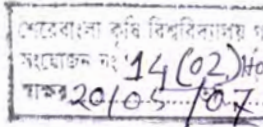 শেরেবাংলা কৃষি বিশ্ববিদ্যালয় গ
সংযোজন নং 14(02) Ho
স্বাক্ষর 20/05/07